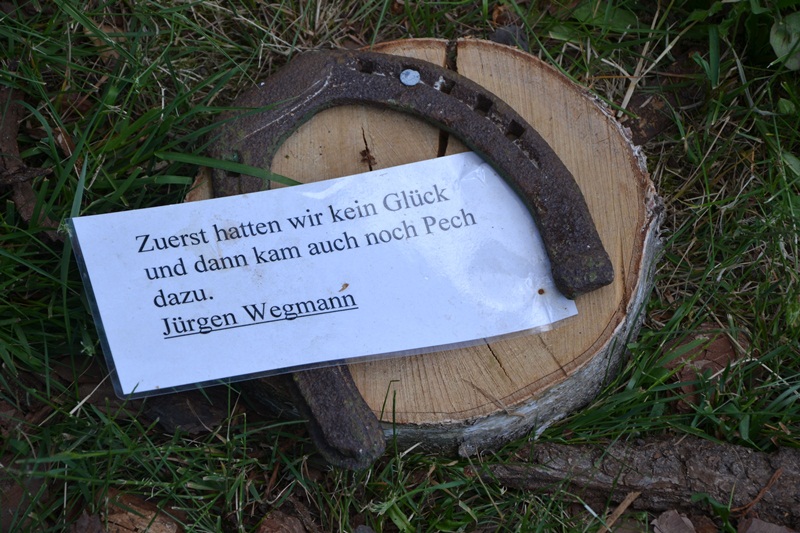 Zuerst hatten wir kein Glück
und dann kam auch noch Pech
dazu.
Jürgen Wegmann